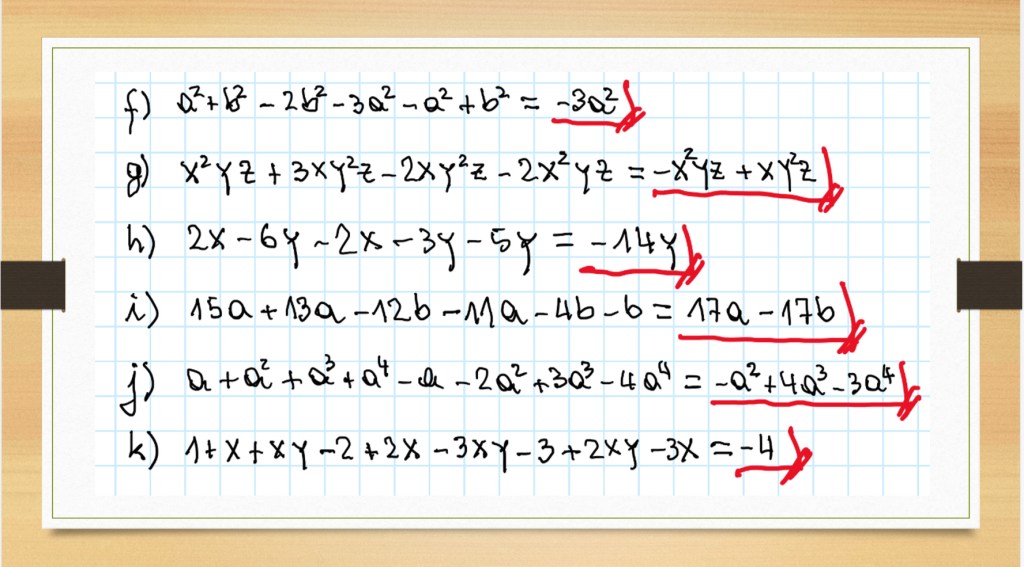 f) a²+b² - 2b² - 3a² - a² + b² = -3a²
g) x²yz + 3xy²z - 2xy²z - 2x²yz = -x²yz + xy²z
h) 2x - 6y - 2x - 3y - 5y = -14y
i) 15a + 13a - 12b - 11a - 4b - b = 17a - 17b
j) a + a² + a³ + a⁴ - a - 2a² + 3a³ - 4a⁴ = -a² + 4a³ - 3a⁴
k) 1 + x + xy - 2 + 2x - 3xy - 3 + 2xy - 3x = -4